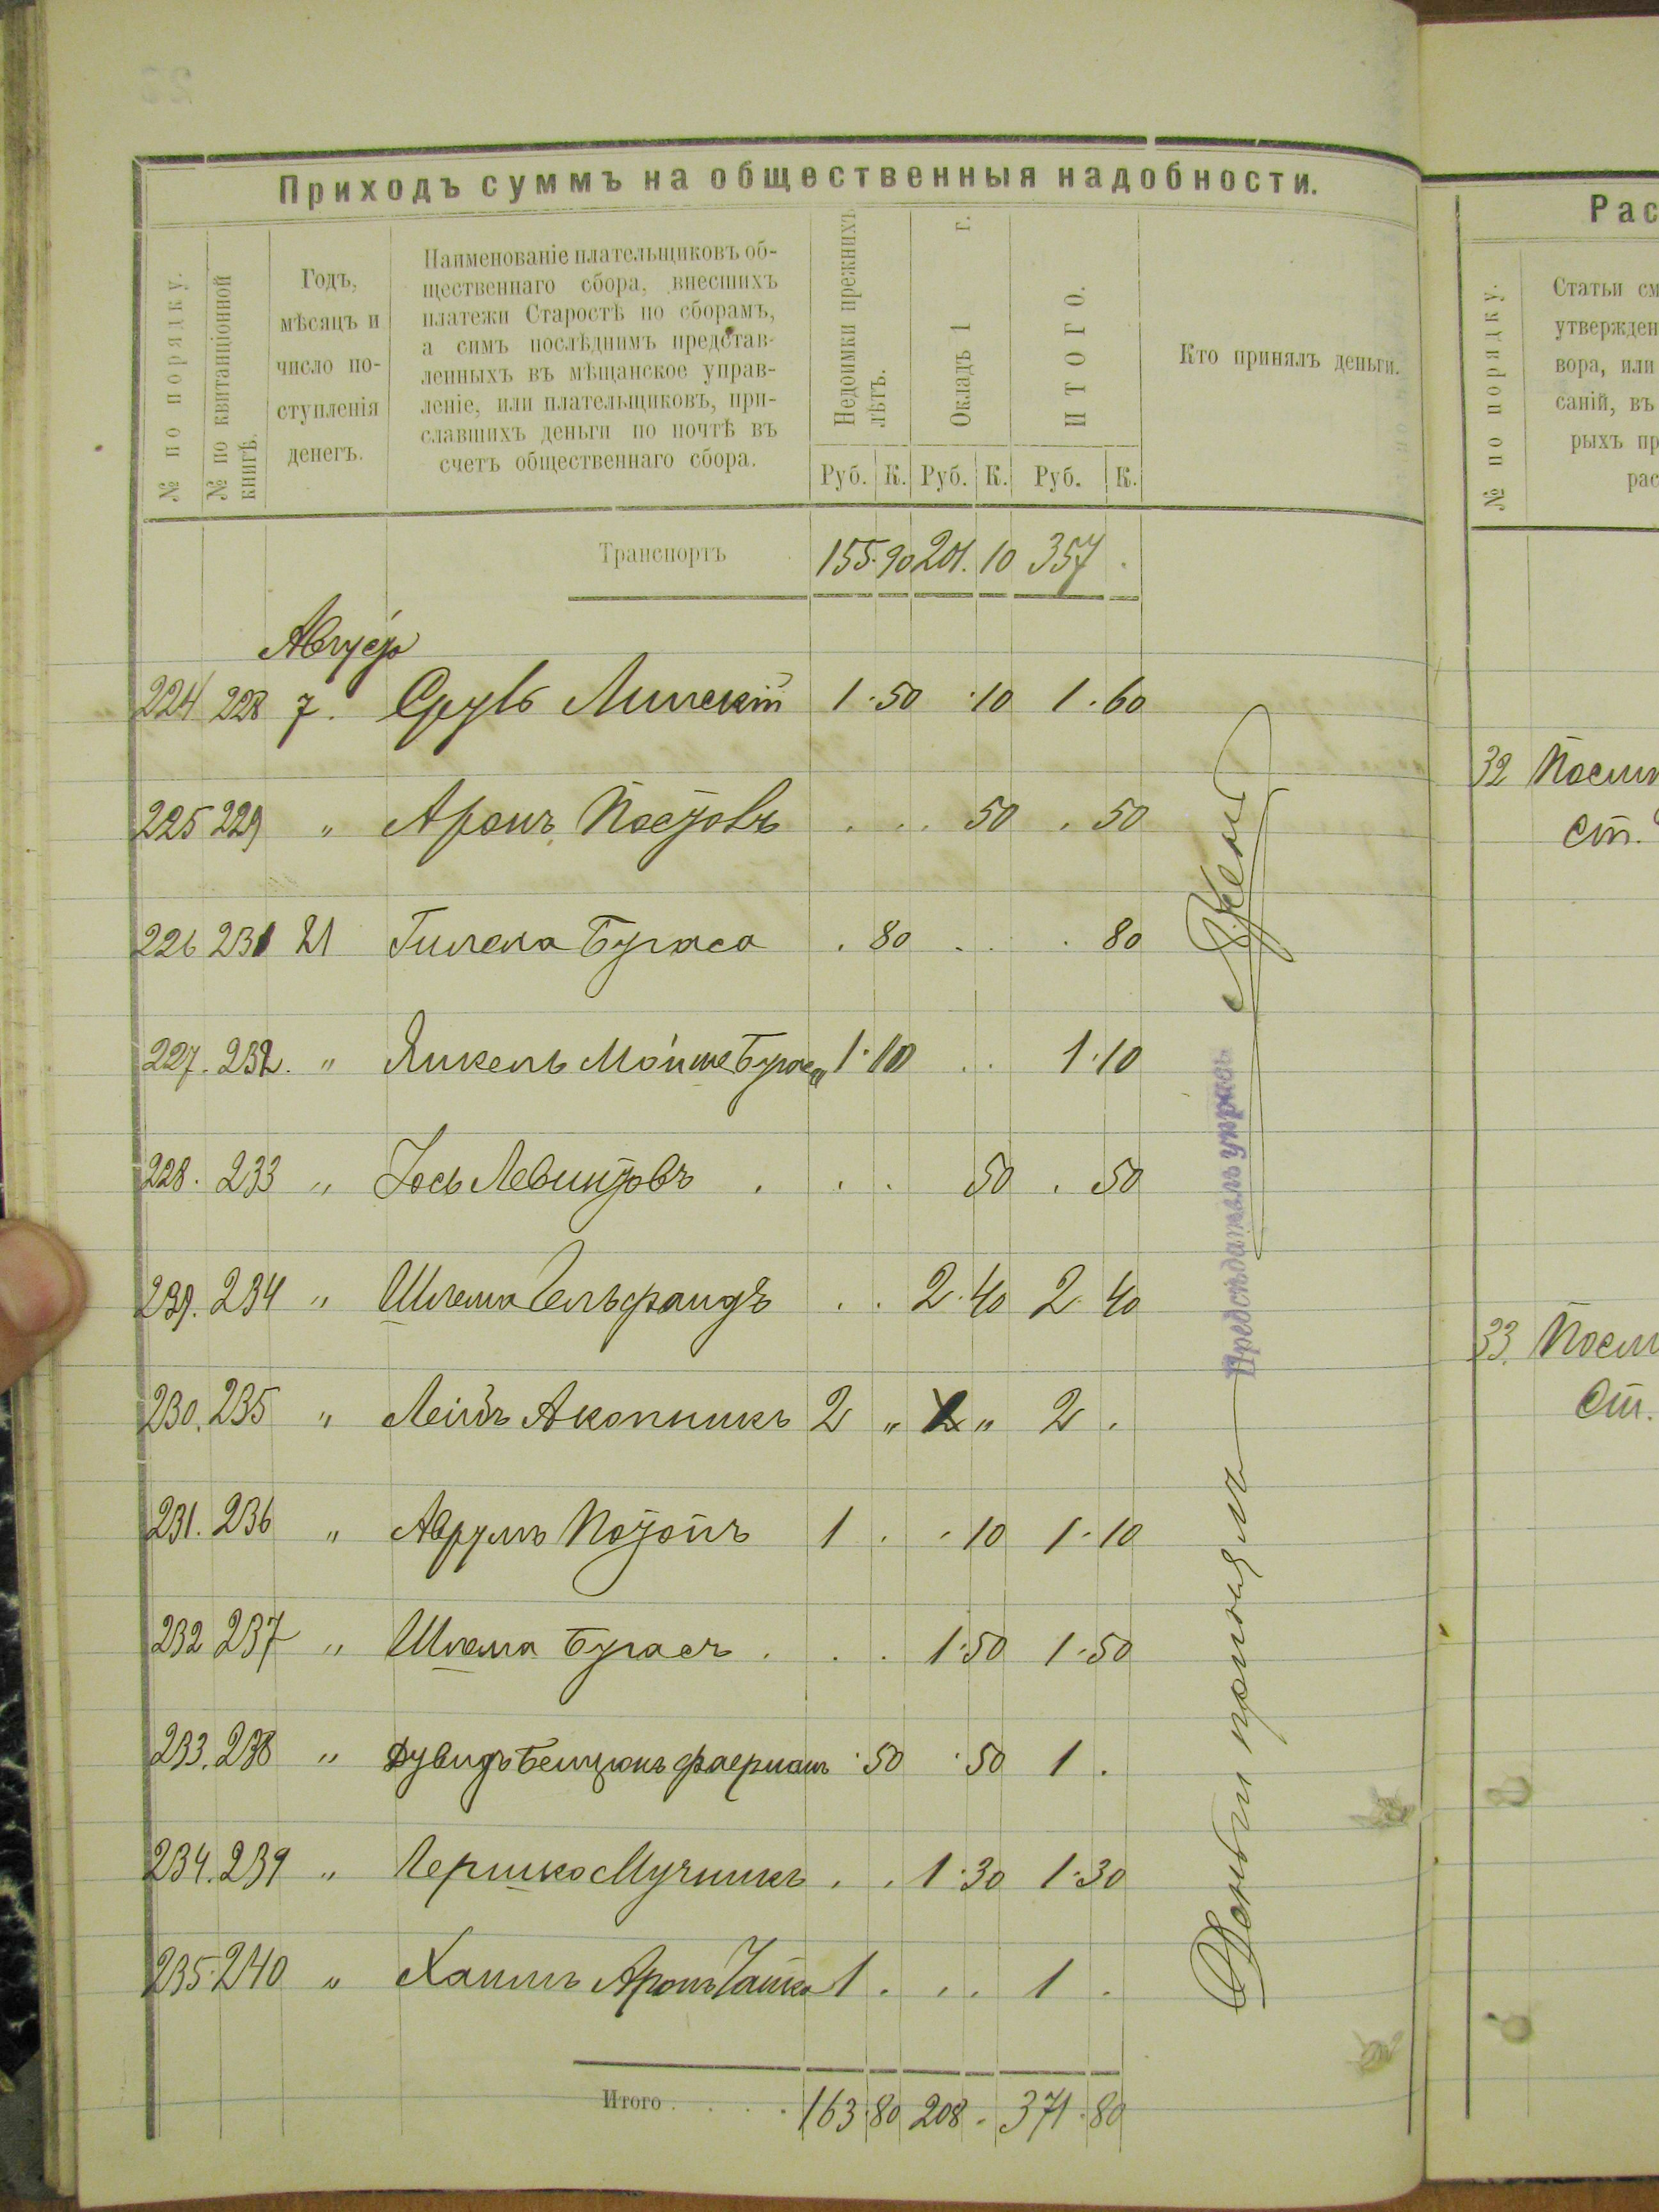 Приходъ суммъ на общественныя надобности.
№ по порядку.
№ по квитанціонной книгѣ.
Годъ,
мѣсяцъ и
число по-
ступленія
денегъ.
Наименованіе плательщиковъ об-
щественнаго сбора, внесшихъ
платежи Старостѣ по сборамъ,
а симъ послѣднимъ представ-
ленныхъ въ мѣщанское управ-
леніе, или плательщиковъ, при-
славшихъ деньги по почтѣ въ
счетъ общественнаго сбора.
Недоимки прежнихъ
лѣтъ.
Окладъ 1 г.
ИТОГО.
Кто принялъ деньги.
Руб. К. Руб. К. Руб. К.
Транспортъ 155 . 90 201 . 10 357 .
224 228 7. Сруль 1 . 50 . 10 1 . 60
225 229 „ Аронъ . . . 50 . 50
226 231 21 Бугаса . 80 . . . 80
227. 232. „ Янкель Мойше 1 . 10 . . 1 . 10
228. 233 „ Іось . . . 50 . 50
234 „ Шлема Гельфандъ . . 2 . 40 2 . 40
230. 235 „ Лейбъ 2 „ „ 2 .
231. 236 „ Аврумъ 1 . . 10 1 . 10
232 237 „ Шлема Бугасъ . . . 1 . 50 1 . 50
233. 238 „ Дувидъ Бенціонъ . 50 . 50 1 .
234. 239 „ Гершко Мучникъ . . 1 . 30 1 . 30
235. 240 „ Хаимъ Аронъ 1 . . . 1 .
Итого . . . . 163 . 80 208 . 371 . 80
Деньги принялъ
Предсѣдатель управы
Рас
№ по порядку.
Статьи см
утвержден
вора, или
саній, въ
рыхъ пр
рас
32
ст.
33.
ст.